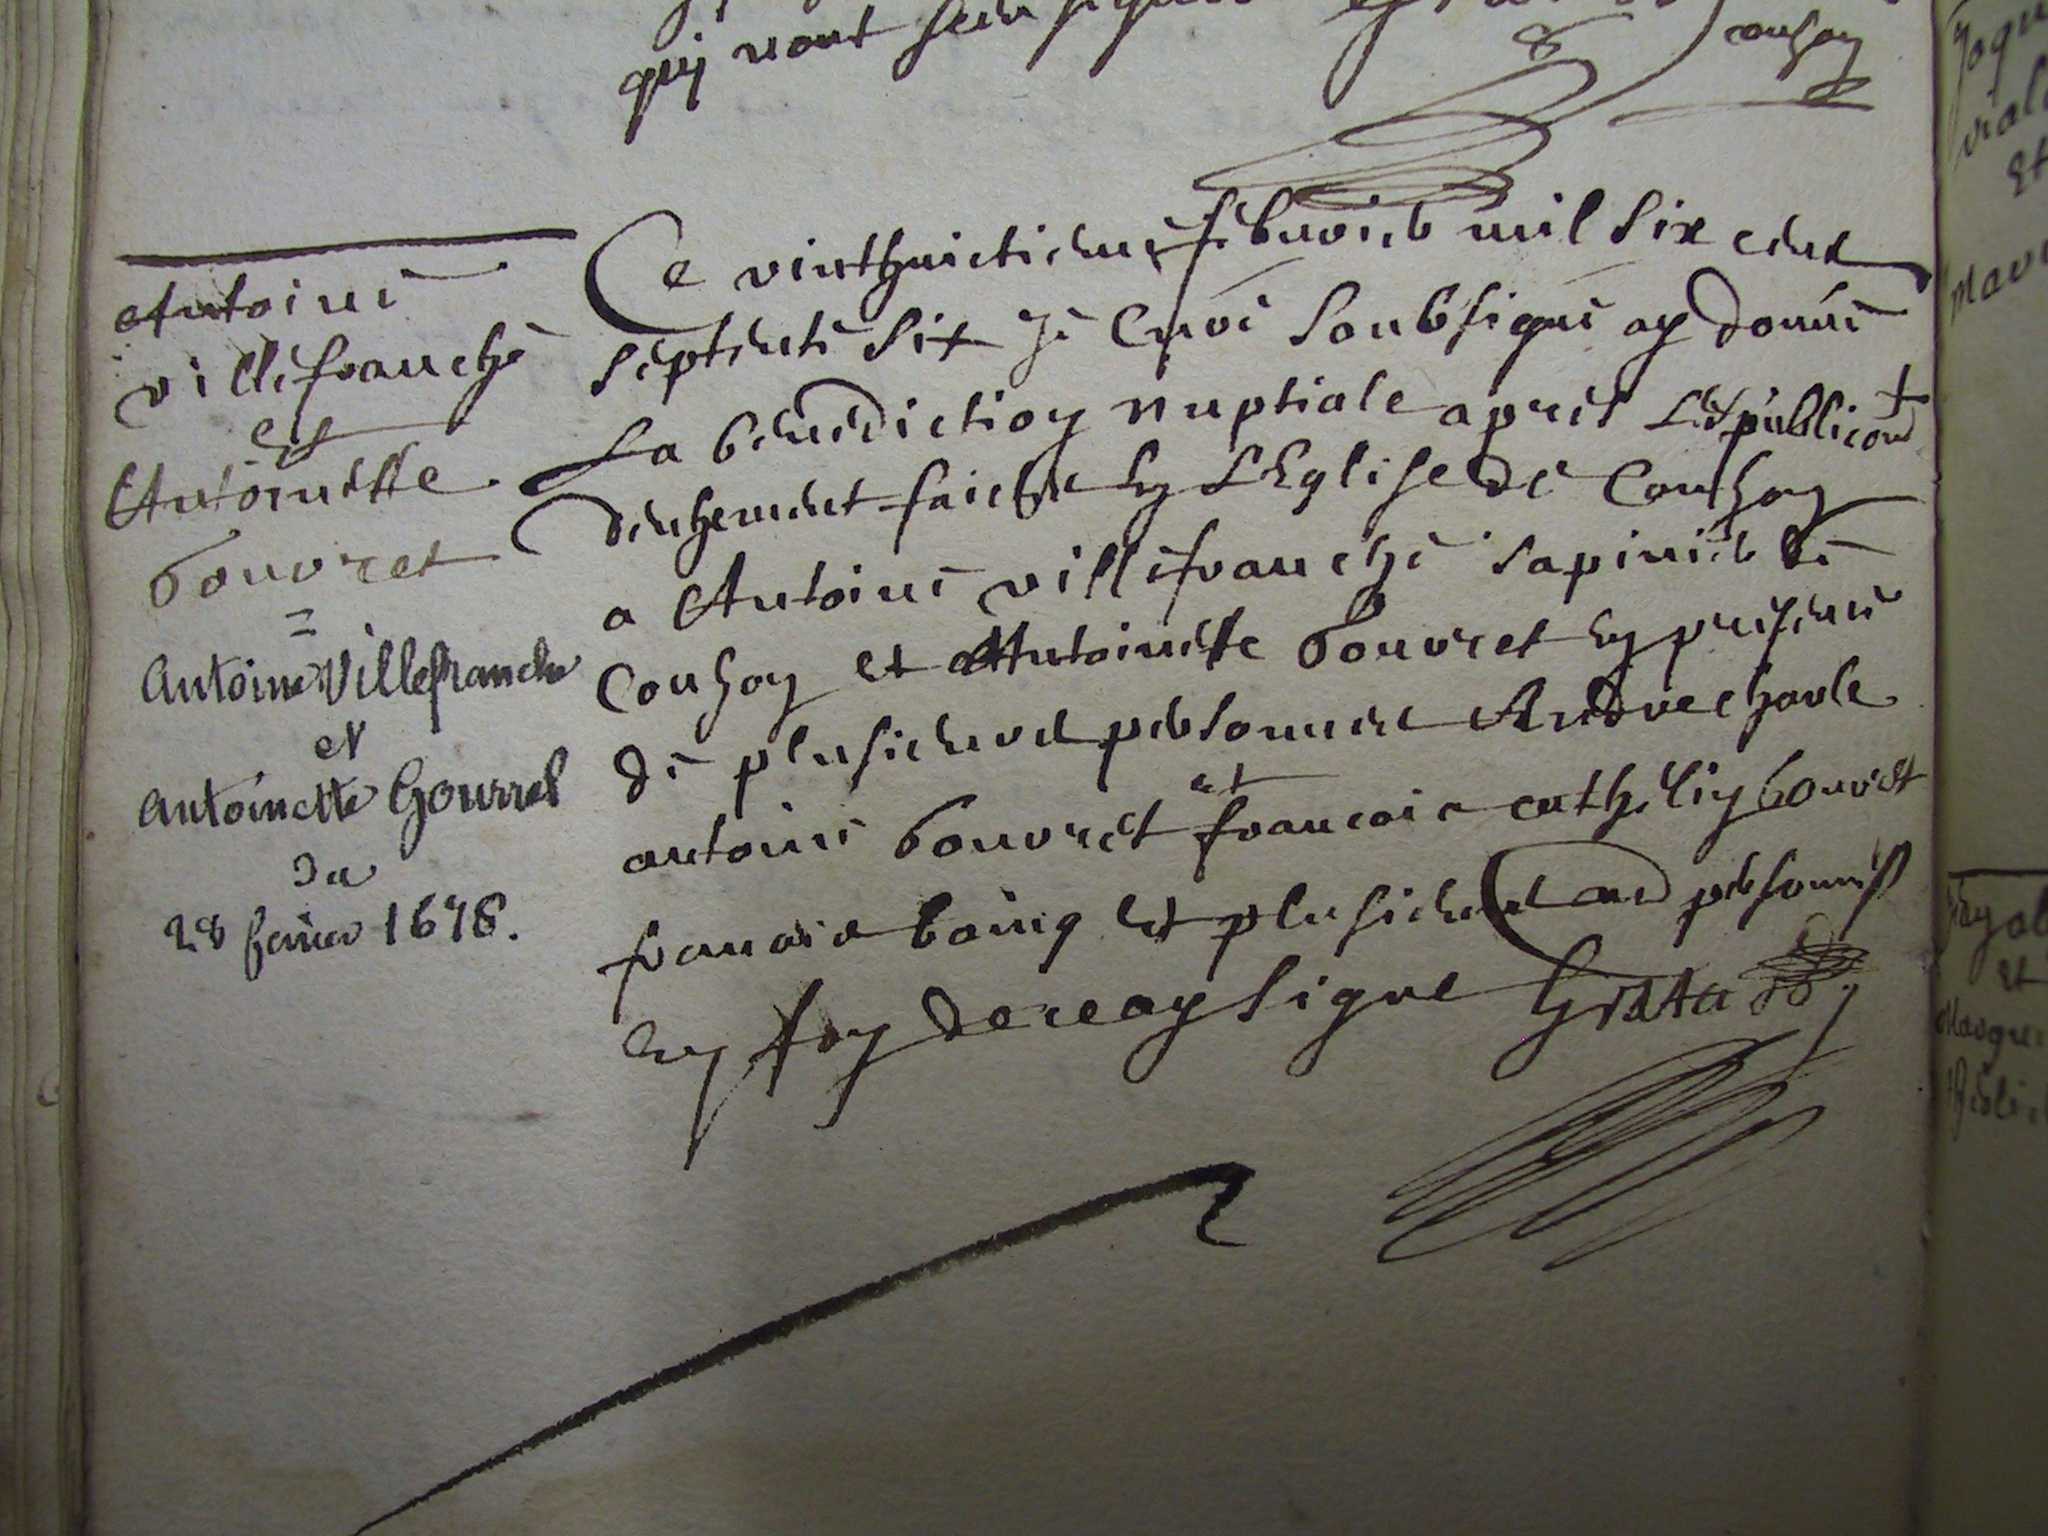 quj n'ont sceu signer
couhoy
Antoine
villefranche
et
Antoinette
Gouvret
=
Antoine Villefranche
et
Antoinette Gourret
Du
28 fevrier 1678.
Ce vinthuictieme februier mil six cens
septente six Je Curé soubsigné ay donné
La benediction nuptiale apres Les publicons
deuhement faictes en L'Eglise de Couhoy
a Antoine villefranche sapinier de
Couhoy et Antoinette Gouvret en presence
de plusieurs personnes Andre charle
antoine Gouvret et francois cathelin Gouvret
francois boing et plusieurs au personnes
En foy de ce ay signe
Et